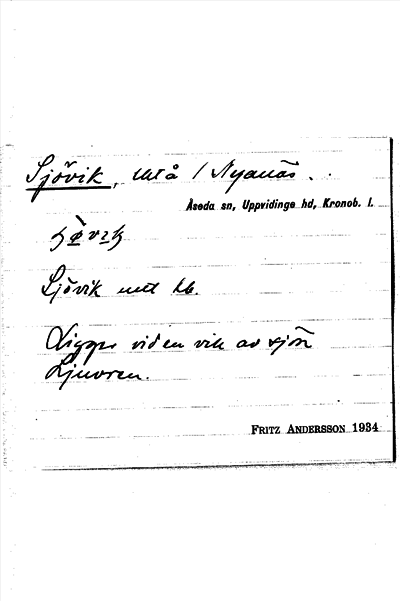 Sjövik, utå / Nyanäs.
Åseda sn, Uppvidinge hd, Kronob. l.
Sjövik utå hb.
Ligger vid en vik av sjön
Ljuvren.
FRITZ ANDERSSON 1934